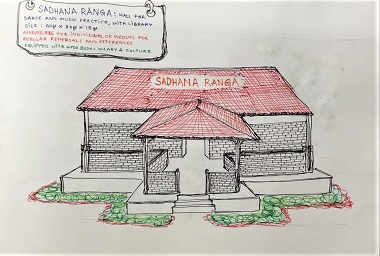 SADHANA RANGA: HALL FOR
DANCE AND MUSIC PRACTICE, WITH LIBRARY
SIZE: 60
ACCESSIBLE FOR INDIVIDUAL OR GROUPS FOR
REGULAR REHEARSALS AND REFERENCES
EQUIPPED WITH GOOD BOOKS ON ART & CULTURE
SADHANA RANGA